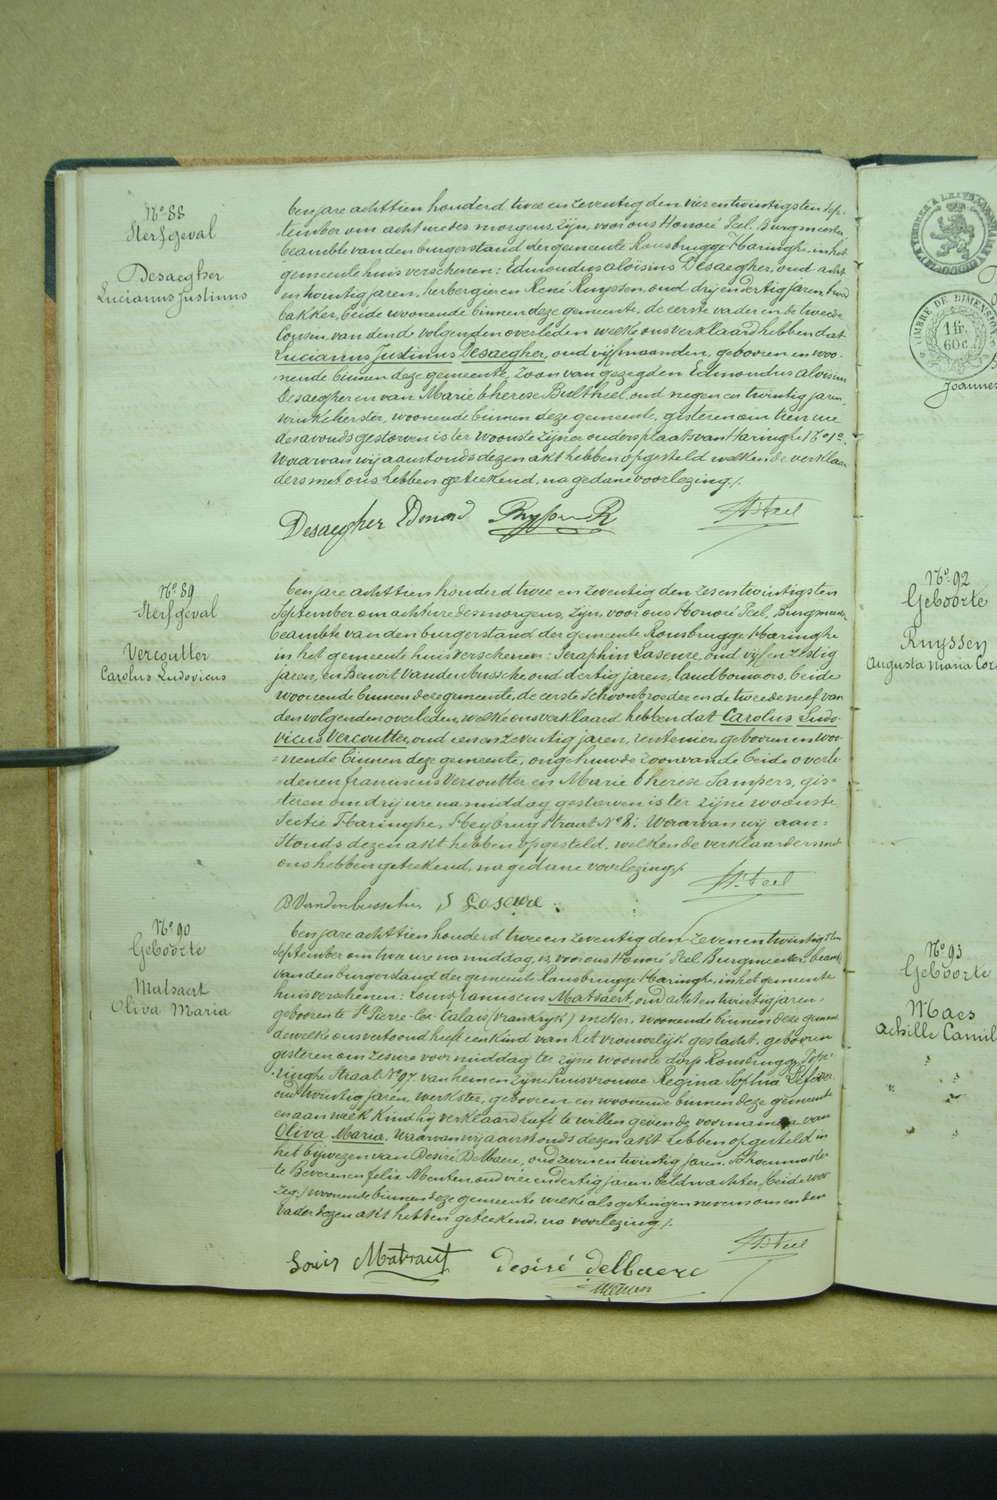 N.o 88
Sterfgeval
Desaegher
Lucianus Justinus
ten jare achttien honderd twee en zeventig den vier en twintigsten Sep-
tember om acht ure des morgens, zijn, voor ons Honoré Feel, Burgmeester
beambte van den burgerstand der gemeente Rousbrugge-Haringhe, in het
gemeente huis verschenen: Edmondus aloisius Desaegher, oud acht
en twintig jaren, herbergier en René Ruyssen, oud drij en dertig jaren, brood
bakker, beide woonende binnen deze gemeente, de eerste vader en de tweede
Cousin van den de volgenden overleden welke ons verklaard hebben dat
Lucianus Justinus Desaegher, oud vijf maanden, gebooren en woo-
nende binnen deze gemeente, Zoon van gezegden Edmondus aloisius
Desaegher en van Marie therese Bultheel, oud negen en twintig jaren,
winkelierster, woonende binnen deze gemeente, gisteren om tien ure
des avonds gestorven is ter woonste zijner ouders plaats van Haringhe N.o 12.
Waarvan wij aanstonds dezen akt hebben opgesteld welken de verklaar
ders met ons hebben geteekend, na gedane voorlezing /.
Desaegher Edmond Ruyssen R H. Feel
N.o 89
Sterfgeval
Vercoutter
Carolus Ludovicus
ten jare achttien honderd twee en zeventig den zes en twintigsten
September om acht ure des morgens, zijn, voor ons Honoré Feel, Burgmeester
beambte van den burgerstand der gemeente Rousbrugge Haringhe
in het gemeente huis verschenen: Seraphin Laseure, oud vijf en zestig
jaren, en Benoit Vandenbussche oud dertig jaren, landbouwers, beide
woonende binnen deze gemeente, de eerste schoonbroeder en de tweede neef van
den volgenden overleden, welke ons verklaard hebben dat Carolus Ludo-
vicus Vercoutter, oud een en zeventig jaren, rentenier, gebooren en woo-
nende binnen deze gemeente, ongehuwde Zoon van de beide overle
denen franciscus Vercoutter en Marie therese Sampers, gis-
teren om drij ure na middag gestorven is ter zijne woonste
Sectie Haringhe, Heybrug straat N.o 2. Waarvan wij aan-
stonds dezen akt hebben opgesteld, welken de verklaarders met
ons hebben geteekend, na gedane voorlezing /.
B Vandenbussche S Laseure H. Feel
N.o 90
Geboorte
Matsaert
Oliva Maria
ten jare achttien honderd twee en zeventig den zeven en twintigsten
September om twee ure na middag, is, voor ons Honoré Feel Burgmeester, beambte
van den burgerstand der gemeente Rousbrugge-Haringhe, in het gemeente
huis verschenen: Louis franciscus Matsaert, oud acht en twintig jaren,
geboren te St. Pierre-les-Calais (Vrankrijk) metser, woonende binnen deze gemeente
dewelke ons vertoond heeft een kind van het vrouwelijk geslacht, gebooren
gisteren om zes ure voor middag ter zijne woonste dorp Rousbrugge,
ringhe Straat N.o 97. van hem en zijne huisvrouwe Regina Sophia
oud twintig jaren, werkster, geboren en woonende binnen deze gemeente
en aan welk kind hij verklaard heeft te willen geven de voornamen van
Oliva Maria. Waarvan wij aanstonds dezen akt hebben opgesteld in
het bijwezen van Desiré Delbaere, oud zeven en twintig jaren,
te Beveren en felix Menten, oud vier en dertig jaren, veldwachter, beide
woonende binnen deze gemeente welke als getuigen nevens ons en den
vader dezen akt hebben geteekend, na voorlezing /.
H. Feel
Louis Matsaert desiré delbaere
N.o 92
Geboorte
Ruyssen
Augusta Maria
N.o 93
Geboorte
Maes
Achille Camil
TIMBRE DE DIMENSION
1 fr.
60 c.
Joannes